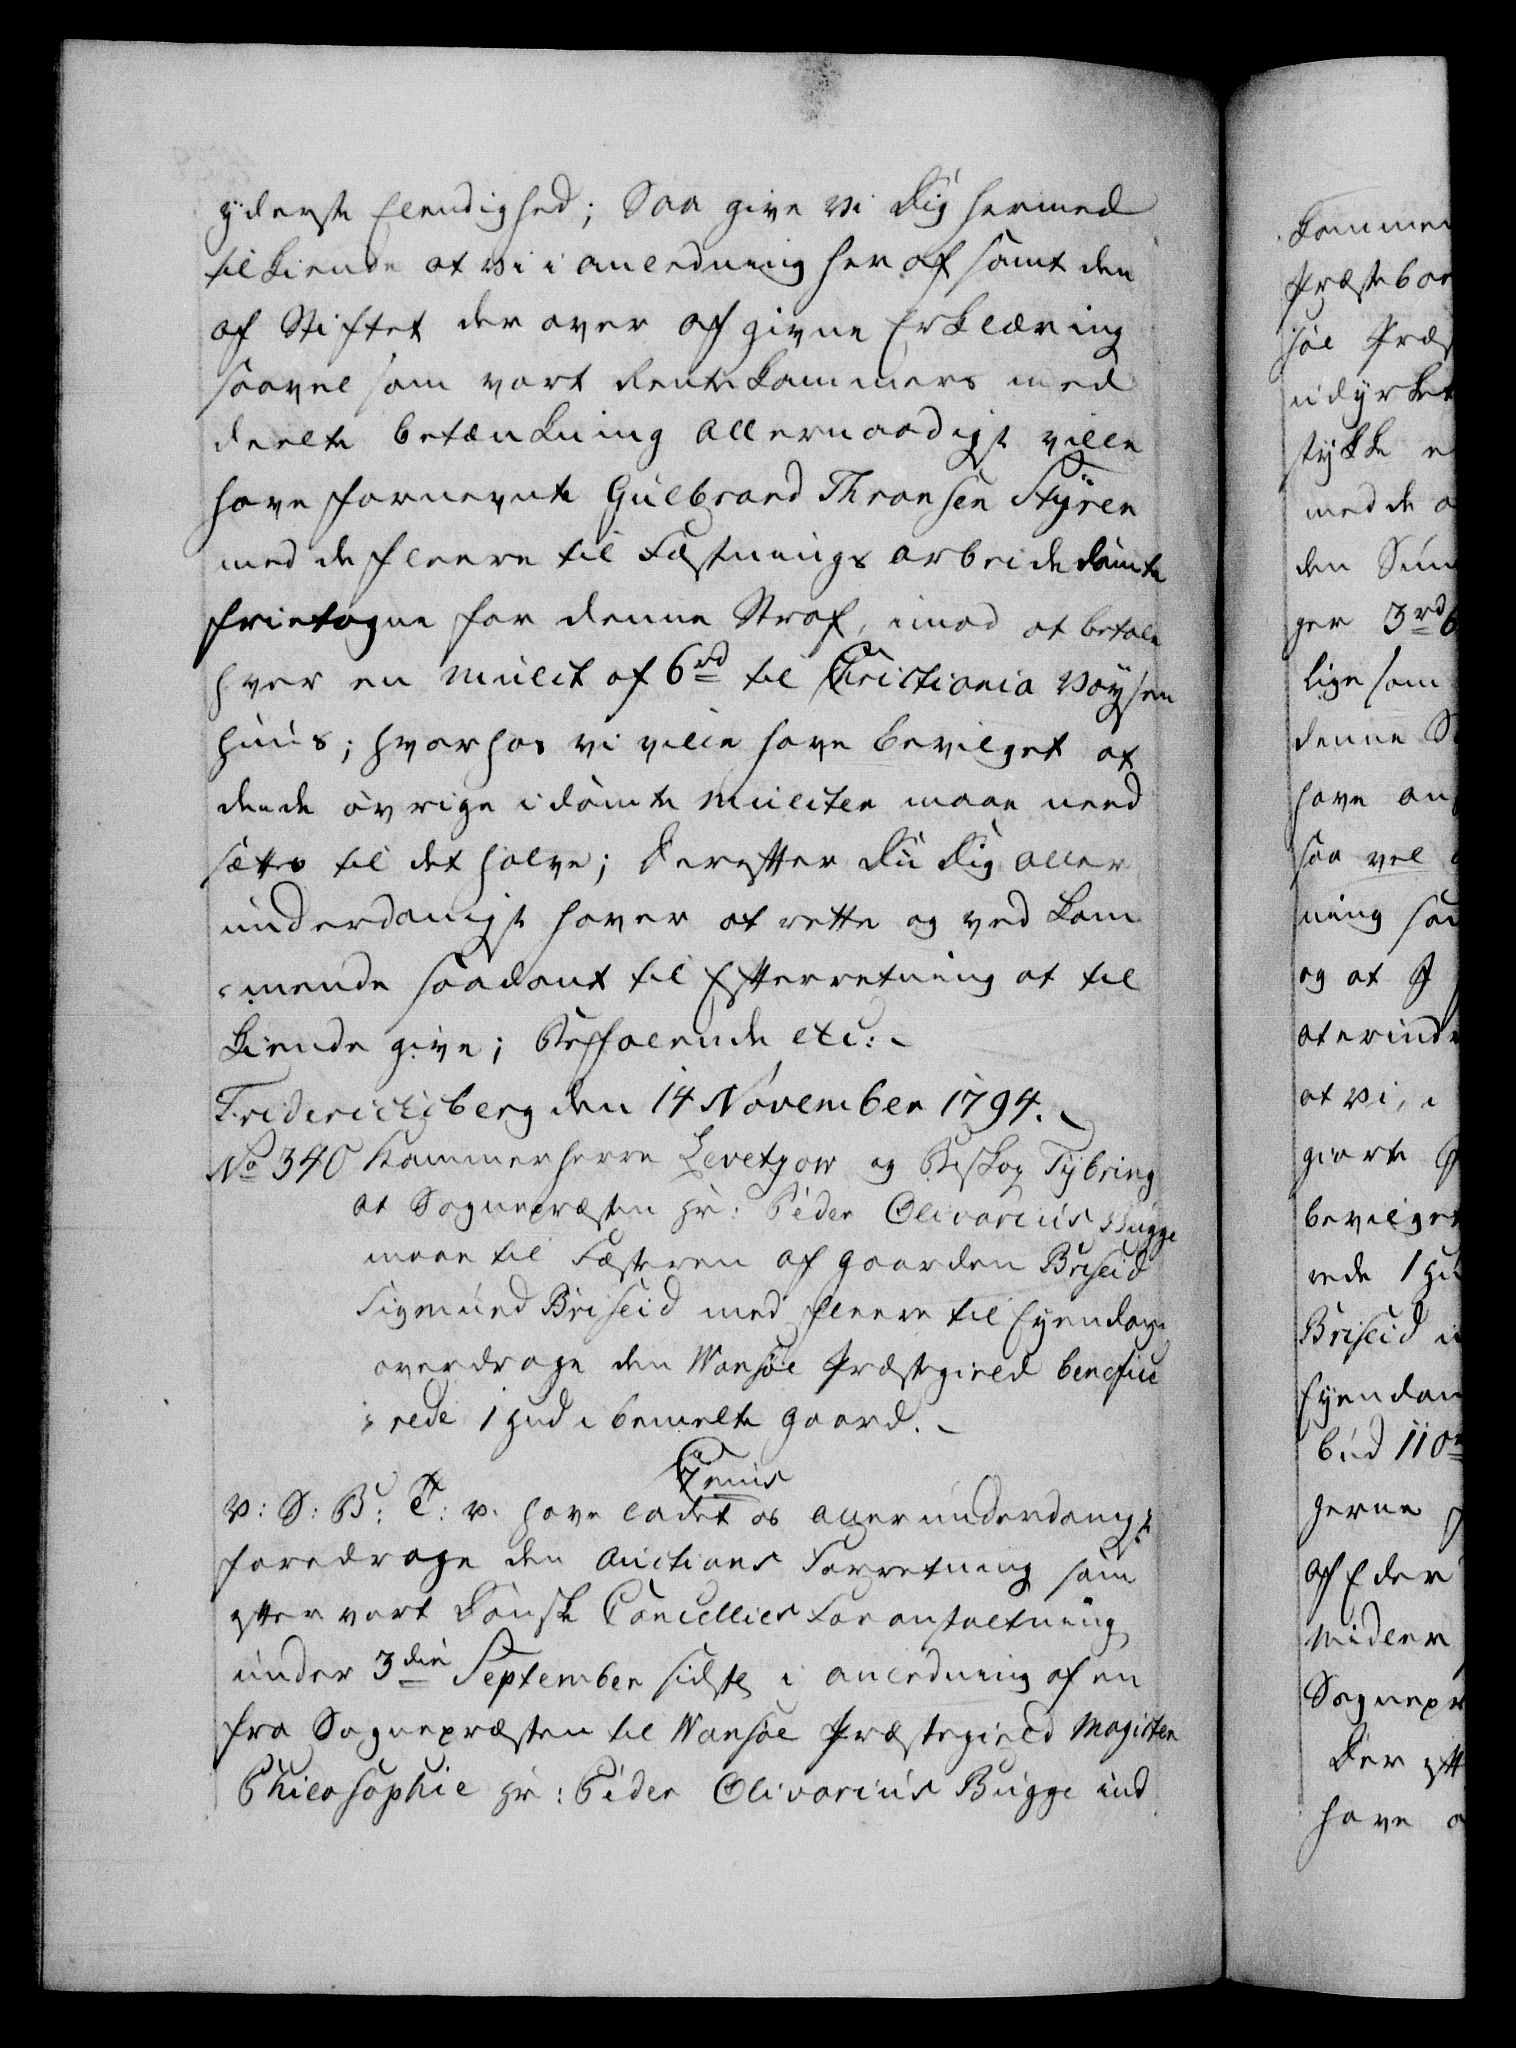 yderste Elendighed; Saa give Vi Dig hermed
til kiende at vi i anledning her af samt den
af Stiftet der over af givne Erklæring
saavel som vort Rentekammers med
deelte betænkning allernaadigst ville
have fornevnte Gulbrand Thronsen Styren
med de fleere til Fæstnings arbeide dømte
frietagne for denne Straf, imod at betale
hver en mulct af 6 rd til Christiania Tøysen
huus; hvorhos vi ville have bevilget at
deende øvrige idømte mulcter maae need
sættes til det halve; Derefter Du Dig aller
underdanigst haver at rette og ved kom
mende saadant til Efterretning at til
kiende give; Befalende etc:
Friderichsberg den 14 November 1794.
No 340 Kammerherre Levetzow og Biskop Tybring
at Sognepræsten Hr: Peder Olivarius Bugge
maae til Fæsteren af gaarden Briseid
Sigmund Briseid med fleere til Eyendom
overdrage den Wansøe Præstegield benefice
rede 1 Hud i bemelte Gaard.
C7enus
V: S: B: T: V. have ladet os allerunderdanigst
foredrage den Auctions Forretning som
efter vort Danske Cancellies Foranstaltning
under 3die September sidste i anledning af en
fra Sognepræsten til Wansøe Præstegield Magister
Philosophie Hr: Peder Olivarius Bugge ind
kommen
Præstebor
søe Præs
udyrket
stykke e
med de a
den Sum
ger 3 rd 6
lige som
denne S
have an
saa vel
ning saa
og at I
at erindr
at vi, i
giorte
bevilget
rede 1 Hu
Briseid i
Eyendom
bud 110
gerne
af Eder
midler
Sognepr
Der eft
have a